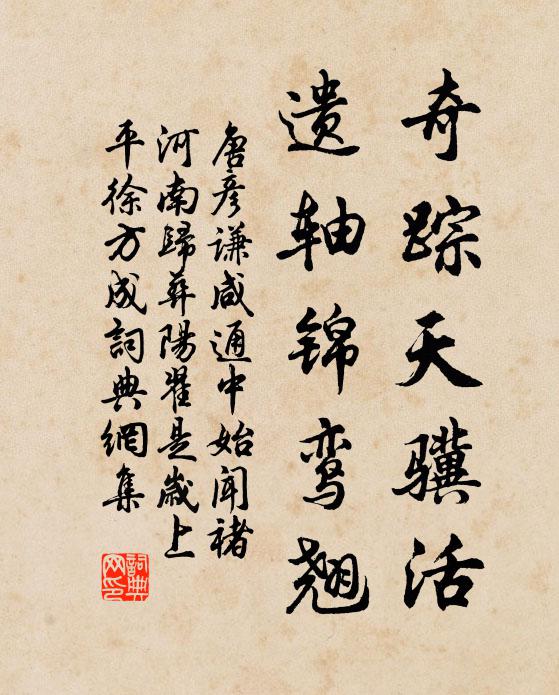 奇踪天骥活
遗轴锦鸾翘
唐彦谦咸通中始闻褚
河南歸葬陽翟是歲上
平徐方成詞典網集
詞典网印